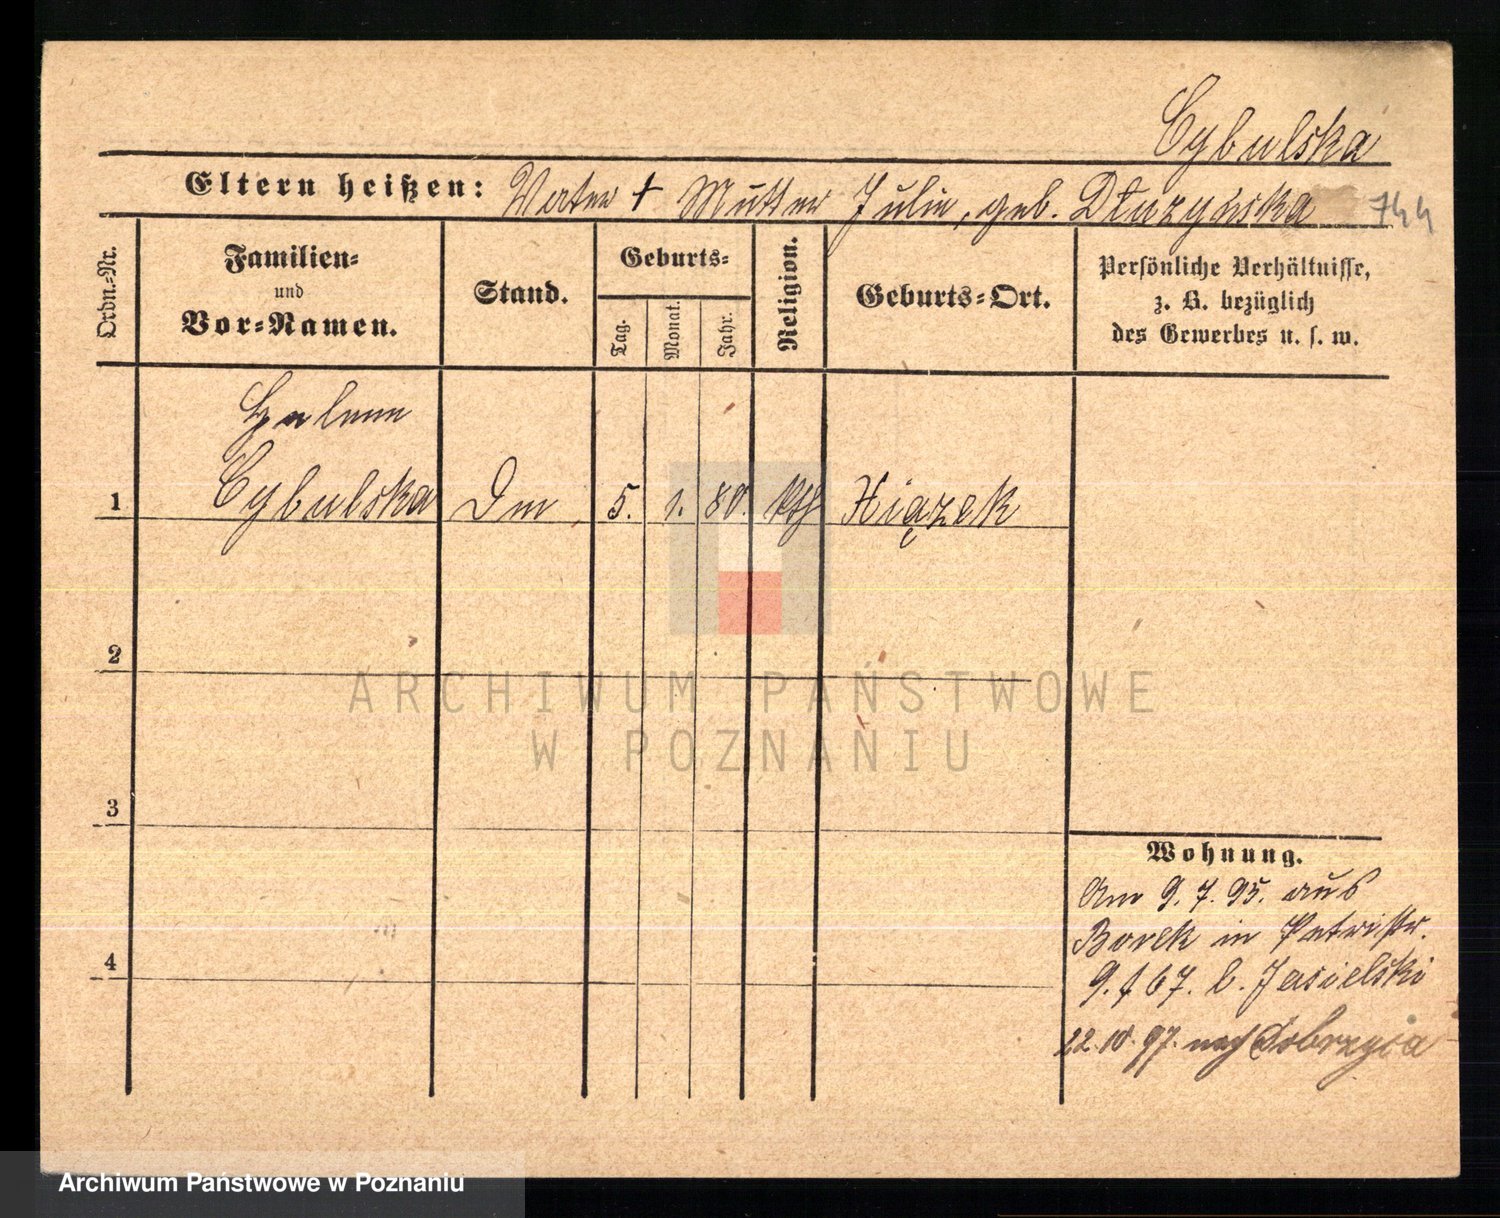 Cybulska
Eltern heißen: Vater + Mutter Julie, geb. Dłuzyńska 744
Ordn.-Nr.
Familien-
und
Vor-Namen.
Stand.
Geburts-
Tag.
Monat.
Jahr.
Religion.
Geburts-Ort.
Persönliche Verhältnisse,
z. B. bezüglich
des Gewerbes u. s. w.
Helene
1 Cybulska 5. 1. 80. kth Xiązek
2
3
4
Wohnung.
Am 9. 7. 95. aus
Borek in
9. 67. b. Jasielski
22. 10. 97. nach Dobrzyca
ARCHIWUM PAŃSTWOWE
W POZNANIU
Archiwum Państwowe w Poznaniu